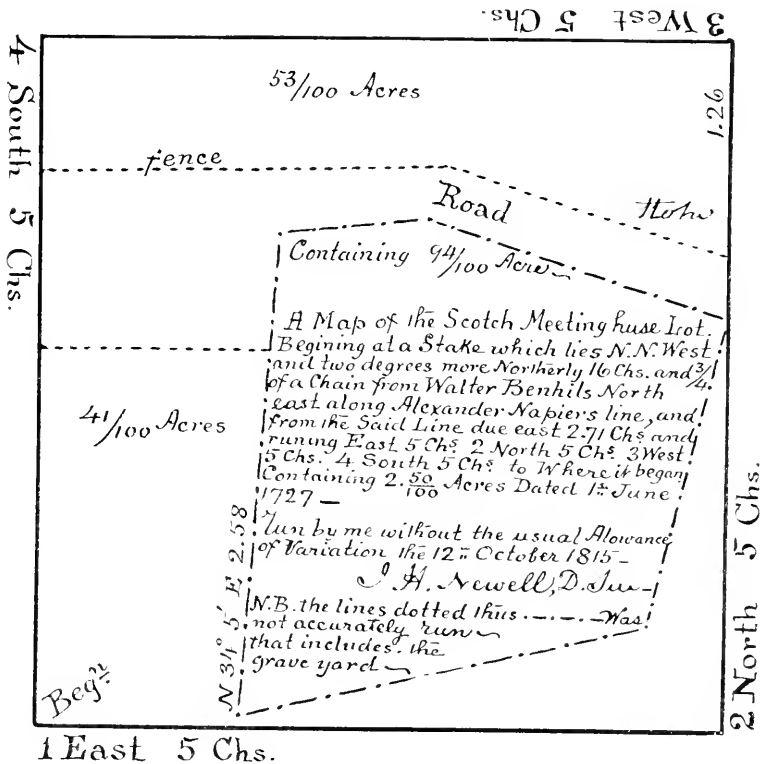 3 West 5 Chs.
4 South 5 Chs.
53/100 Acres
1.26
fence
Road
Containing 94/100 Acre
A Map of the Scotch Meeting huse Lot.
Begining at a Stake which lies N.N. West
and two degrees more Northerly 16 Chs. and 3/4
of a Chain from Walter Benhils North
east along Alexander Napiers line, and
from the Said Line due east 2.71 Chs and
runing East 5 Chs. 2 North 5 Chs. 3 West
5 Chs. 4 South 5 Chs to Where it began
Containing 2.50/100 Acres Dated 1st June
1727 —
41/100 Acres
Run by me without the usual Alowance
of Variation the 12th October 1815 –
J. H. Newell, D. Sur–
N.B. the lines dotted thus . – . – . – Was
not accurately run
that includes the
grave yard
N 34° 5' E 2.58
Beg'g
2 North 5 Chs.
1 East 5 Chs.